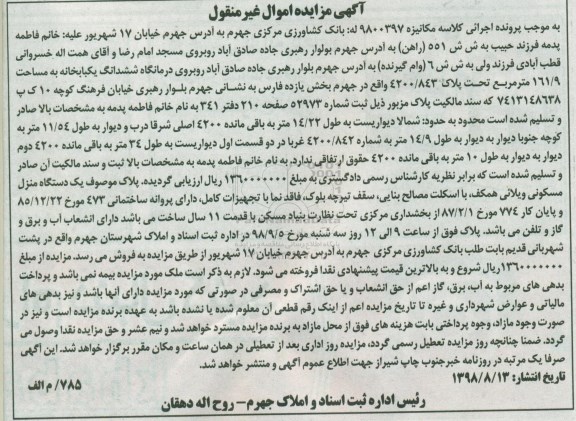 آگهی مزایده اموال غیر منقول
به موجب پرونده اجرائی کلاسه مکانیزه ۹۸۰۰۳۹۷ له: بانک کشاورزی مرکزی جهرم به ادرس جهرم خیابان ۱۷ شهریور علیه: خانم فاطمه
پدمه فرزند حبیب به ش ش ۵۵۱ (راهن) به ادرس جهرم بولوار رهبری جاده صادق آباد روبروی مسجد امام رضا و آقای همت اله خسروانی
قطب آبادی فرزند ولی به ش ش ۶ (وام گیرنده) به ادرس جهرم بلوار رهبری جاده صادق آباد روبروی درمانگاه ششدانگ یکبابخانه به مساحت
۱۶۱/۹ مترمربع تحت پلاک ۴۲۰۰/۸۴۳ واقع در جهرم بخش یازده فارس به نشانی جهرم بلوار رهبری خیابان فرهنگ کوچه ۱۰ ک پ
۷۴۱۳۱۴۸۶۳۸ که سند مالکیت پلاک مزبور ذیل ثبت شماره ۵۲۹۷۳ صفحه ۲۱۰ دفتر ۳۴۱ به نام خانم فاطمه پدمه به مشخصات بالا صادر
و تسلیم شده است محدود به حدود: شمالا دیواریست به طول ۱۴/۲۲ متر به باقی مانده ۴۲۰۰ اصلی شرقا درب و دیوار به طول ۱۱/۵۴ متر به
کوچه جنوبا دیوار به دیوار به طول ۱۴/۹ متر به شماره ۴۲۰۰/۸۴۲ غربا در دو قسمت اول دیواریست به طول ۳۴ متر به باقی مانده ۴۲۰۰ دوم
دیوار به دیوار به طول ۱۰ متر به باقی مانده ۴۲۰۰ حقوق ارتفاقی ندارد. به نام خانم فاطمه پدمه به مشخصات بالا ثبت و سند مالکیت آن صادر
و تسلیم شده است که برابر نظریه کارشناس رسمی دادگستری به مبلغ ۱۳۶۰۰۰۰۰۰۰ ریال ارزیابی گردیده. پلاک موصوف یک دستگاه منزل
مسکونی ویلائی همکف، با اسکلت مصالح بنایی، سقف تیرچه بلوک، فاقد نما با تجهیزات کامل، دارای پروانه ساختمانی ۴۷۳ مورخ ۸۵/۱۲/۲۲
و پایان کار ۷۷۴ مورخ ۸۷/۲/۱ از بخشداری مرکزی تحت نظارت بنیاد مسکن با قدمت ۱۱ سال ساخت می باشد دارای انشعاب آب و برق و
گاز و تلفن می باشد. پلاک فوق از ساعت ۹ الی ۱۲ روز سه شنبه مورخ ۹۸/۹/۵ در اداره ثبت اسناد و املاک شهرستان جهرم واقع در پشت
شهربانی قدیم بابت طلب بانک کشاورزی مرکزی جهرم به ادرس جهرم خیابان ۱۷ شهریور از طریق مزایده به فروش می رسد. مزایده از مبلغ
۱۳۶۰۰۰۰۰۰۰ ریال شروع و به بالاترین قیمت پیشنهادی نقدا فروخته می شود. لازم به ذکر است ملک مورد مزایده بیمه نمی باشد و پرداخت
بدهی های مربوط به آب، برق، گاز اعم از حق انشعاب و یا حق اشتراک و مصرفی در صورتی که مورد مزایده دارای آنها باشد و نیز بدهی های
مالیاتی و عوارض شهرداری و غیره تا تاریخ مزایده اعم از اینک رقم قطعی آن معلوم شده یا نشده باشد به عهده برنده مزایده است و نیز در
صورت وجود مازاد، وجوه پرداختی بابت هزینه های فوق از محل مازاد به برنده مزایده مسترد خواهد شد و نیم عشر و حق مزایده نقدا وصول می
گردد. ضمنا چنانچه روز مزایده تعطیل رسمی گردد، مزایده روز اداری بعد از تعطیلی در همان ساعت و مکان مقرر برگزار خواهد شد. این آگهی
صرفا یک مرتبه در روزنامه خبرجنوب چاپ شیراز جهت اطلاع عموم آگهی و منتشر خواهد شد.
تاریخ انتشار: ۱۳۹۸/۸/۱۳
۷۸۵/ م الف
رئیس اداره ثبت اسناد و املاک جهرم – روح اله دهقان